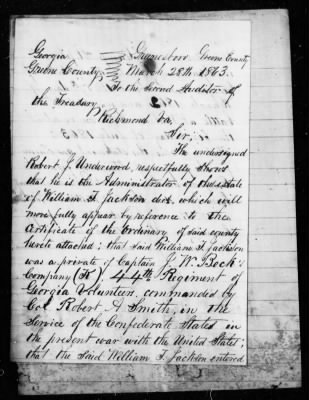 Georgia Greensboro Greene County
Greene County March 28th 1863.
To the Second Auditor of
the Treasury
Richmond Va.
Sir;
The undersigned
Robert J. Underwood, respectfully shows
that he is the Administrator of the estate
of William T. Jackson decd. which will
more fully appear by reference to the
Certificate of the Ordinary of said county
hereto attached; that said William T. Jackson
was a private of Captain J. W. Beck's
Company (K) 44th Regiment of
Georgia Volunteers, commanded by
Col. Robert A Smith, in the
Service of the Confederate States in
the present war with the United States;
that the said William T. Jackson entered